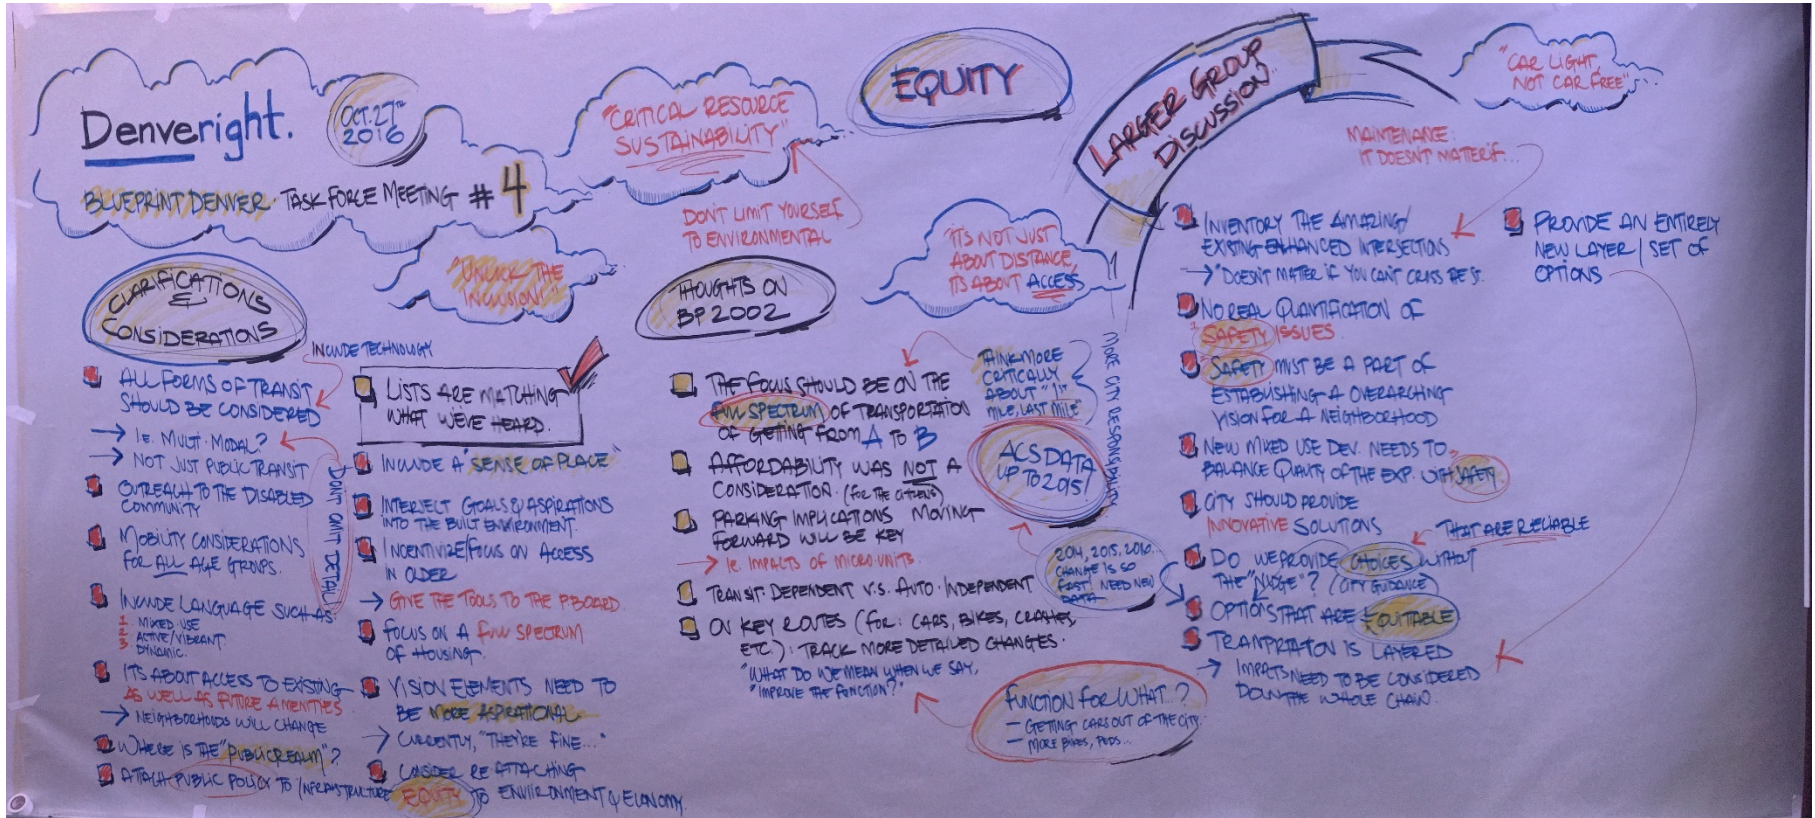 Denveright.
OCT. 27TH
2016
BLUEPRINT DENVER · TASK FORCE MEETING # 4
"CRITICAL RESOURCE
SUSTAINABILITY"
DON'T LIMIT YOURSELF
TO ENVIRONMENTAL
"UNLOCK THE
INCLUSION!"
EQUITY
CLARIFICATIONS
&
CONSIDERATIONS
INCLUDE TECHNOLOGY
ALL FORMS OF TRANSIT
SHOULD BE CONSIDERED
→ IE. MULTI-MODAL?
→ NOT JUST PUBLIC TRANSIT
DON'T OMIT DETAIL
OUTREACH TO THE DISABLED
COMMUNITY
MOBILITY CONSIDERATIONS
FOR ALL AGE GROUPS.
INCLUDE LANGUAGE SUCH AS:
1. MIXED-USE
2. ACTIVE/VIBRANT
3. DYNAMIC.
ITS ABOUT ACCESS TO EXISTING
AS WELL AS FUTURE AMENITIES
→ NEIGHBORHOODS WILL CHANGE
WHERE IS THE "PUBLIC REALM"?
ATTACH PUBLIC POLICY TO INFRASTRUCTURE
LISTS ARE MATCHING
WHAT WE'VE HEARD.
INCLUDE A "SENSE OF PLACE"
INTERJECT GOALS & ASPIRATIONS
INTO THE BUILT ENVIRONMENT.
INCENTIVIZE/FOCUS ON ACCESS
IN OLDER
→ GIVE THE TOOLS TO THE P.BOARD.
FOCUS ON A FULL SPECTRUM
OF HOUSING.
VISION ELEMENTS NEED TO
BE MORE ASPIRATIONAL
→ CURRENTLY, "THEY'RE FINE..."
CONSIDER RE ATTACHING
EQUITY TO ENVIRONMENT & ECONOMY.
THOUGHTS ON
BP 2002
"ITS NOT JUST
ABOUT DISTANCE,
ITS ABOUT ACCESS
THINK MORE
CRITICALLY
ABOUT "1ST
MILE, LAST MILE"
MORE CITY RESPONSIBILITY
THE FOCUS SHOULD BE ON THE
FULL SPECTRUM OF TRANSPORTATION
OF GETTING FROM A TO B
AFFORDABILITY WAS NOT A
CONSIDERATION. (FOR THE CITIZENS)
PARKING IMPLICATIONS MOVING
FORWARD WILL BE KEY
→ IE. IMPACTS OF MICRO-UNITS.
TRANSIT-DEPENDENT V.S. AUTO-INDEPENDENT
ON KEY ROUTES (FOR: CARS, BIKES, CRASHES,
ETC.): TRACK MORE DETAILED CHANGES.
"WHAT DO WE MEAN WHEN WE SAY,
"IMPROVE THE FUNCTION?"
ACS DATA
UP TO 2015!
2014, 2015, 2016...
CHANGE IS SO
FAST! NEED NEW
DATA
FUNCTION FOR WHAT...?
- GETTING CARS OUT OF THE CITY.
- MORE BIKES, PEDS...
LARGER GROUP
DISCUSSION
"CAR LIGHT,
NOT CAR FREE"
MAINTENANCE:
IT DOESN'T MATTER IF...
INVENTORY THE AMAZING/
EXISTING ENHANCED INTERSECTIONS
→ "DOESN'T MATTER IF YOU CAN'T CROSS THE ST.
NO REAL QUANTIFICATION OF
SAFETY ISSUES
SAFETY MUST BE A PART OF
ESTABLISHING A OVERARCHING
VISION FOR A NEIGHBORHOOD
NEW MIXED USE DEV. NEEDS TO
BALANCE QUALITY OF THE EXP. WITH SAFETY.
CITY SHOULD PROVIDE
INNOVATIVE SOLUTIONS
THAT ARE RELIABLE
DO WE PROVIDE CHOICES WITHOUT
THE "NUDGE"? (CITY GUIDANCE)
OPTIONS THAT ARE EQUITABLE
TRANPRTATION IS LAYERED
→ IMPATS NEED TO BE CONSIDERED
DOWN THE WHOLE CHAIN.
PROVIDE AN ENTIRELY
NEW LAYER/SET OF
OPTIONS